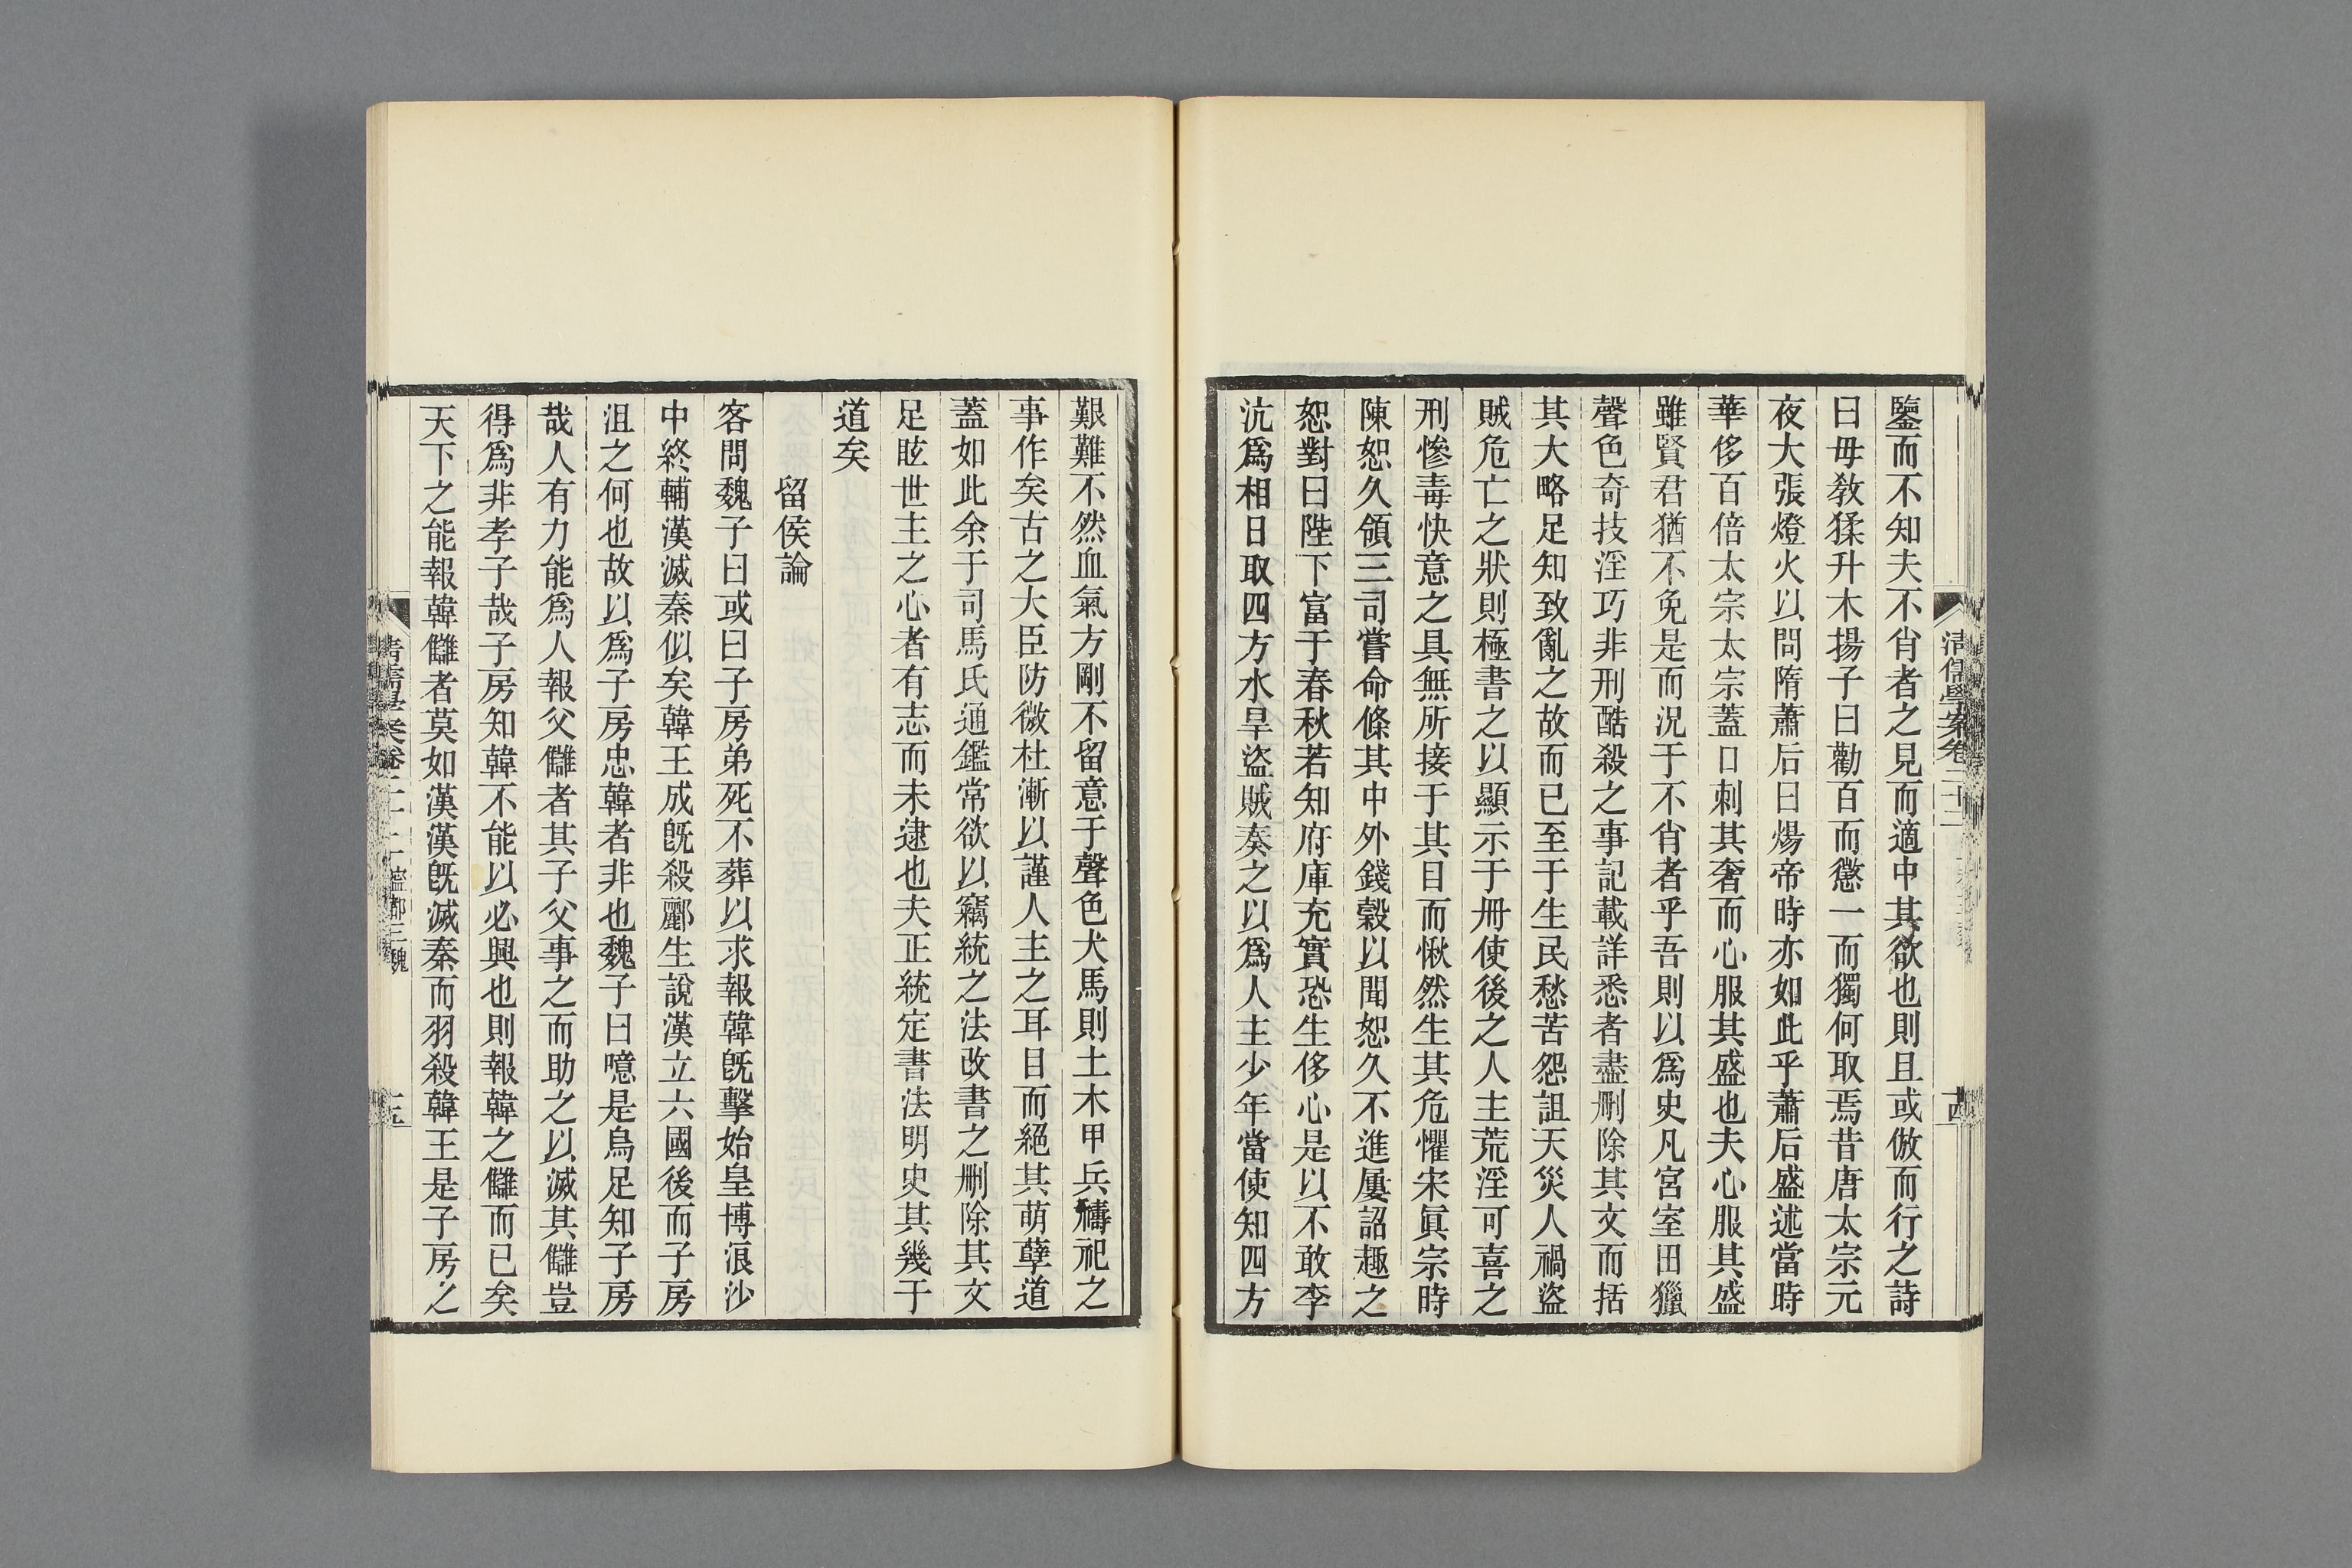 清儒學案卷二十二
十四
鑒而不知夫不肖者之見而適中其欲也則且或倣而行之詩
曰毋敎猱升木揚子曰勸百而懲一而獨何取焉昔唐太宗元
夜大張燈火以問隋蕭后曰煬帝時亦如此乎蕭后盛述當時
華侈百倍太宗太宗蓋口刺其奢而心服其盛也夫心服其盛
雖賢君猶不免是而況于不肖者乎吾則以爲史凡宮室田獵
聲色奇技淫巧非刑酷殺之事記載詳悉者盡刪除其文而括
其大略足知致亂之故而已至于生民愁苦怨詛天災人禍盜
賊危亡之狀則極書之以顯示于冊使後之人主荒淫可喜之
刑慘毒快意之具無所接于其目而愀然生其危懼宋眞宗時
陳恕久領三司嘗命條其中外錢穀以聞恕久不進屢詔趣之
恕對曰陛下富于春秋若知府庫充實恐生侈心是以不敢李
沆爲相日取四方水旱盜賊奏之以爲人主少年當使知四方
艱難不然血氣方剛不留意于聲色犬馬則土木甲兵禱祀之
事作矣古之大臣防微杜漸以謹人主之耳目而絕其萌孽道
蓋如此余于司馬氏通鑑常欲以竊統之法改書之刪除其文
足眩世主之心者有志而未逮也夫正統定書法明史其幾于
道矣
留侯論
客問魏子曰或曰子房弟死不葬以求報韓旣擊始皇博浪沙
中終輔漢滅秦似矣韓王成旣殺酈生說漢立六國後而子房
沮之何也故以爲子房忠韓者非也魏子曰噫是烏足知子房
哉人有力能爲人報父讎者其子父事之而助之以滅其讎豈
得爲非孝子哉子房知韓不能以必興也則報韓之讎而已矣
天下之能報韓讎者莫如漢漢旣滅秦而羽殺韓王是子房之
清儒學案卷二十二
寧都三魏
十五